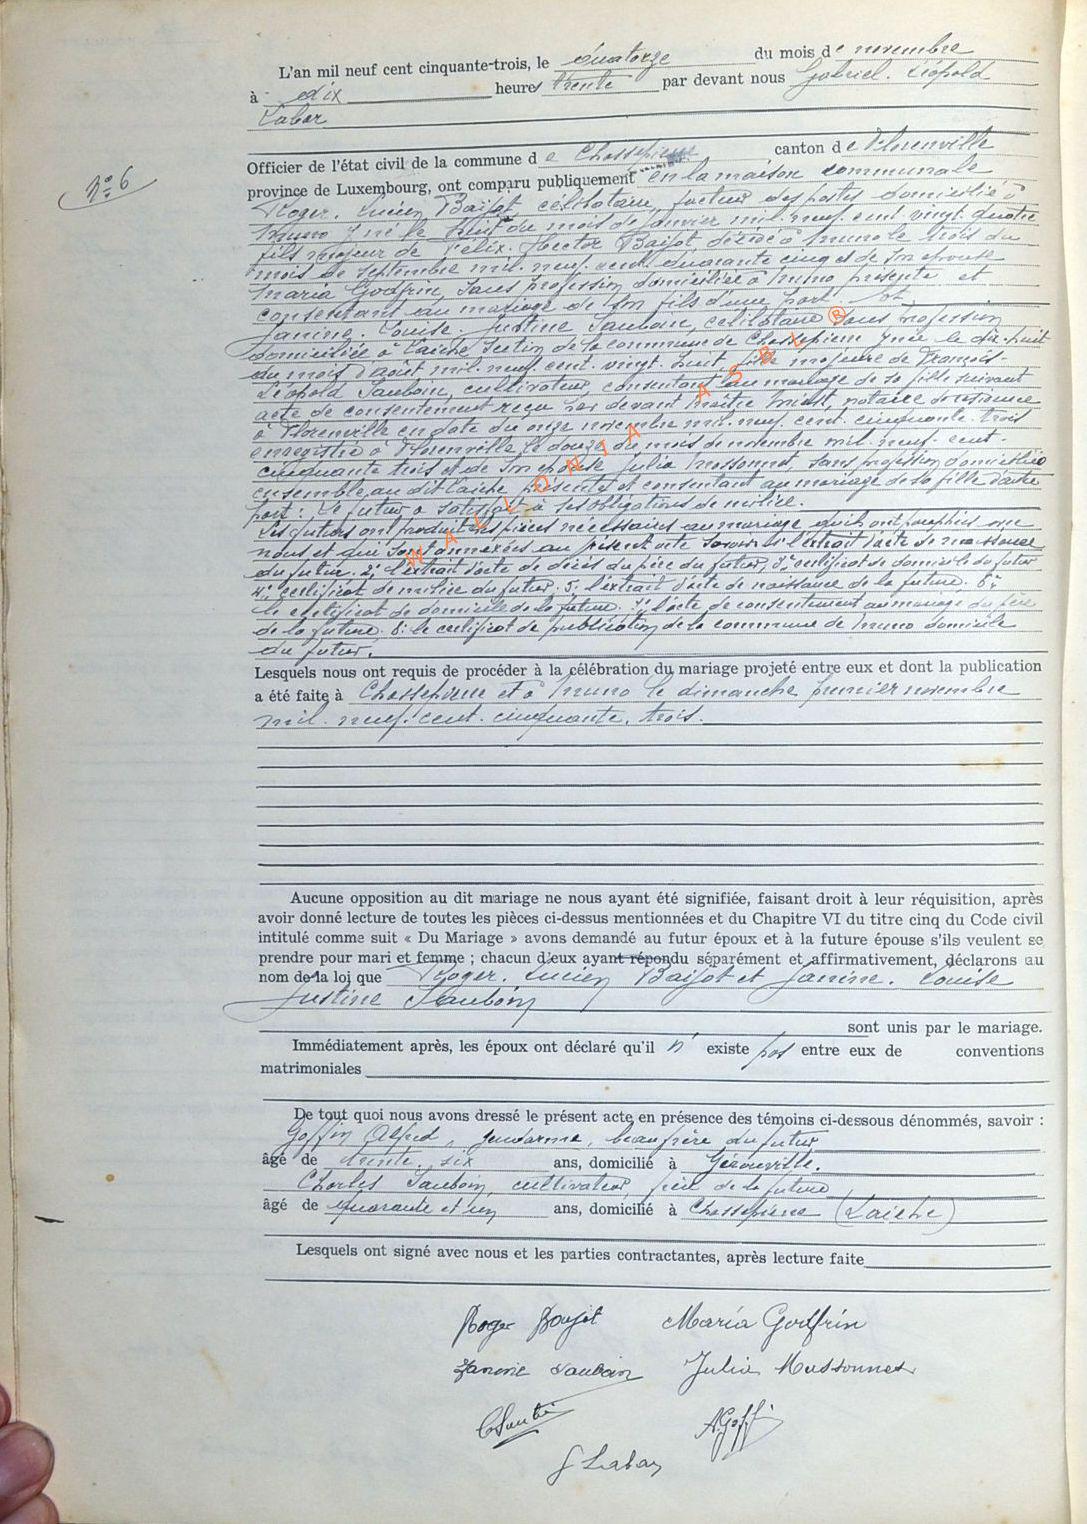 L'an mil neuf cent cinquante-trois, le quatorze du mois de novembre
à dix heures trente par devant nous Gabriel. Léopold
Labar
Officier de l'état civil de la commune de Chassepierre canton de Florenville
N° 6
province de Luxembourg, ont comparu publiquement en la maison communale
Roger. Lucien Baijot célibataire, facteur des postes domicilié à
Muno y né le huit du mois de janvier mil. neuf. cent vingt. quatre
fils majeur de Félix. Hector Baijot, décédé à Muno le trois du
mois de septembre mil. neuf. cent. quarante cinq et de son épouse
Maria Godfrin, sans profession domiciliée à Muno présente et
consentant au mariage de son fils d'une part. Et,
Janine. Louise. Justine Sauboin, célibataire sans profession
domiciliée à Laiche section de la commune de Chassepierre y née le dix-huit
du mois d'août mil. neuf. cent. vingt. huit, fille majeure de François.
Léopold Sauboin, cultivateur, consentant au mariage de sa fille suivant
acte de consentement reçu par devant Maître notaire de résidence
à Florenville en date du onze novembre mil. neuf. cent. cinquante. trois
enregistré à Florenville le douze du mois de novembre mil. neuf. cent.
cinquante trois et de son épouse Julia Massonnet, sans profession domiciliés
ensemble au dit Laiche présente et consentant au mariage de sa fille d'autre
part: Le futur a satisfait à ses obligations de milice.
Les futurs ont produit les pièces nécessaires au mariage qu'ils ont paraphées avec
nous et qui sont annexées au présent acte savoir: 1° l'extrait d'acte de naissance
du futur. 2° l'extrait d'acte de décès du père du futur, 3° certificat de domicile du futur
4° certificat de milice du futur, 5° l'extrait d'acte de naissance de la future. 6°
le certificat de domicile de la future. 7° l'acte de consentement au mariage du père
de la future. 8° le certificat de publication de la commune de Muno domicile
du futur.
WALLONIA ASBL ®
Lesquels nous ont requis de procéder à la célébration du mariage projeté entre eux et dont la publication
a été faite à Chassepierre et à Muno le dimanche premier novembre
mil. neuf. cent. cinquante. trois.
Aucune opposition au dit mariage ne nous ayant été signifiée, faisant droit à leur réquisition, après
avoir donné lecture de toutes les pièces ci-dessus mentionnées et du Chapitre VI du titre cinq du Code civil
intitulé comme suit « Du Mariage » avons demandé au futur époux et à la future épouse s'ils veulent se
prendre pour mari et femme ; chacun d'eux ayant répondu séparément et affirmativement, déclarons au
nom de la loi que Roger. Lucien Baijot et Janine. Louise
Justine Sauboin
sont unis par le mariage.
Immédiatement après, les époux ont déclaré qu'il n' existe pas entre eux de conventions
matrimoniales
De tout quoi nous avons dressé le présent acte en présence des témoins ci-dessous dénommés, savoir :
Goffin Alfred, gendarme, beau frère du futur
âgé de trente. six ans, domicilié à Gérouville.
Charles Sauboin, cultivateur, frère de la future
âgé de quarante et un ans, domicilié à Chassepierre (Laiche)
Lesquels ont signé avec nous et les parties contractantes, après lecture faite
Roger Baijot Maria Godfrin
Janine Sauboin Julia Massonnet
A. Goffin
G Labar